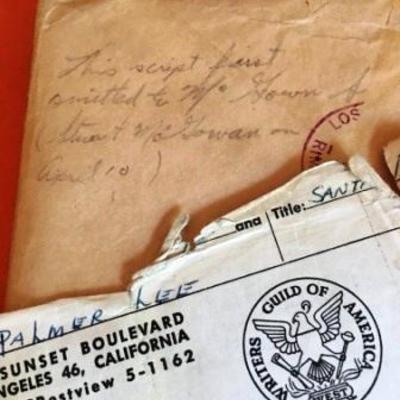 This script first
submitted to Mc Gowan &
(Stuart McGowan on
April 10)
LOS
ana Title: SANT
PALMER LEE
SUNSET BOULEVARD
NGELES 46, CALIFORNIA
Crestview 5-1162
WRITERS GUILD OF AMERICA
WEST